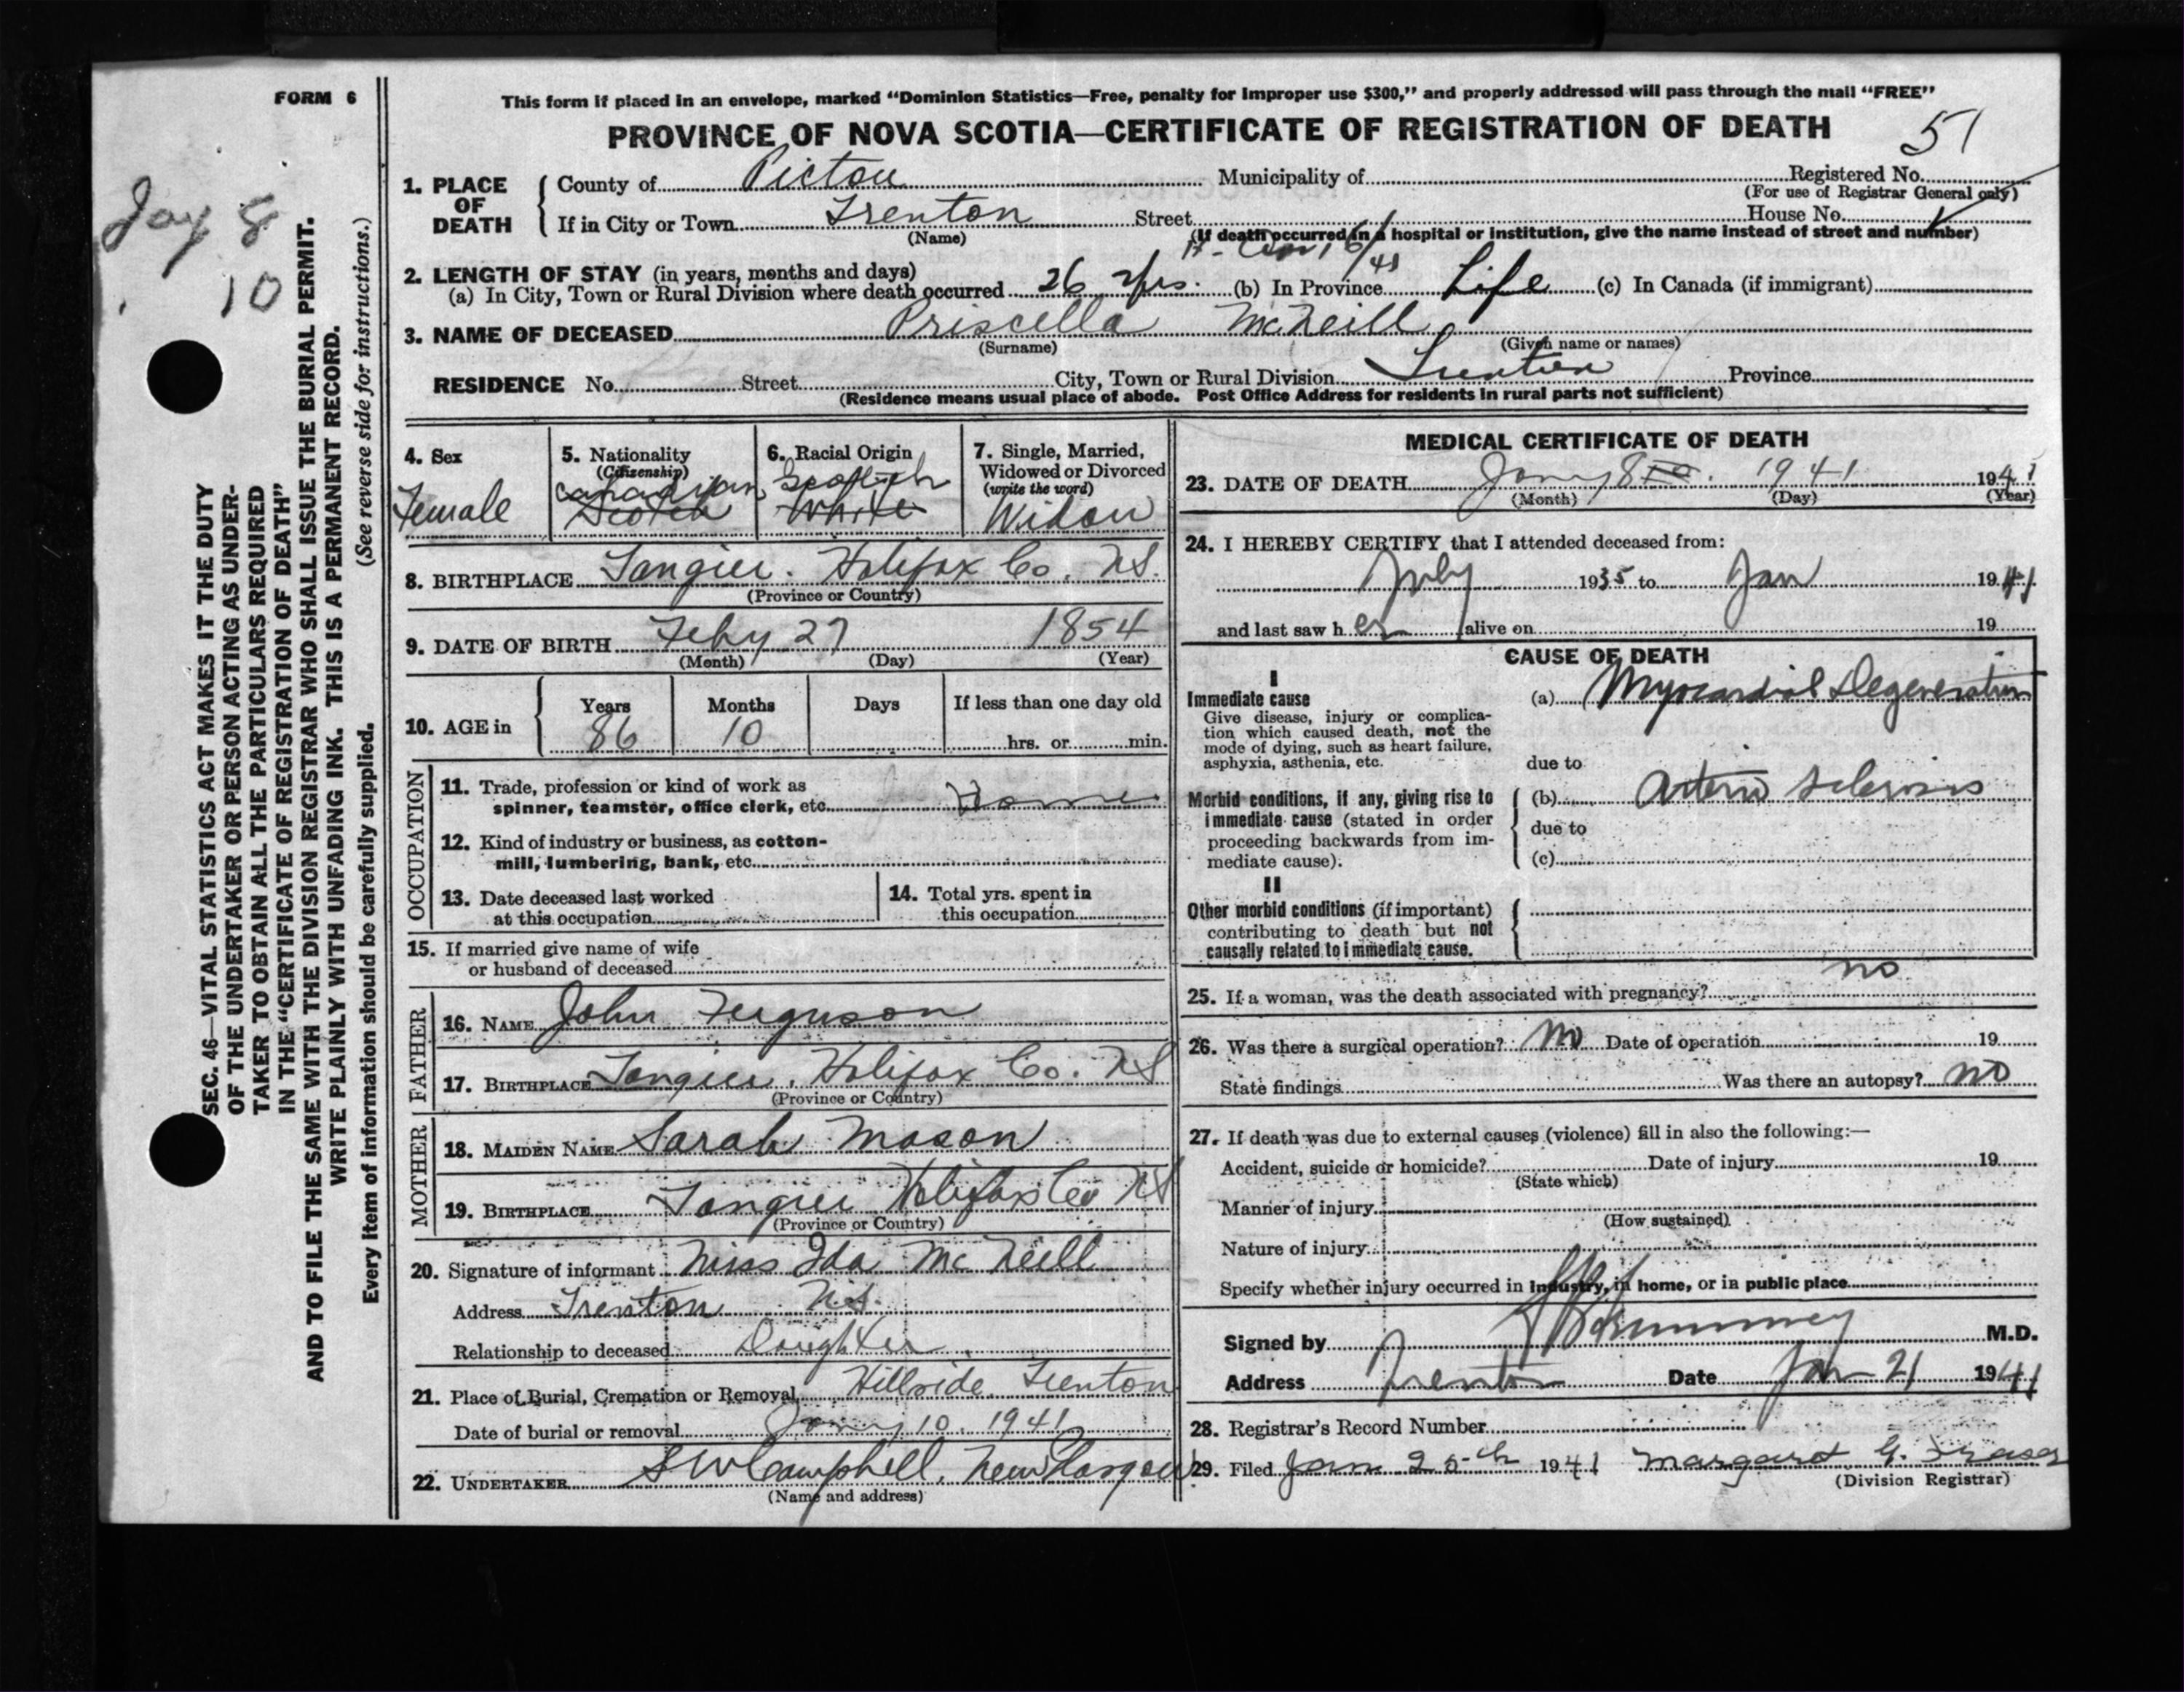 FORM 6
This form if placed in an envelope, marked “Dominion Statistics—Free, penalty for improper use $300,” and properly addressed will pass through the mail “FREE”
PROVINCE OF NOVA SCOTIA—CERTIFICATE OF REGISTRATION OF DEATH
51
1. PLACE OF DEATH
County of Pictou Municipality of Registered No.
(For use of Registrar General only)
If in City or Town Trenton Street House No.
(Name) (If death occurred in a hospital or institution, give the name instead of street and number)
2. LENGTH OF STAY (in years, months and days)
(a) In City, Town or Rural Division where death occurred 26 yrs. (b) In Province Life (c) In Canada (if immigrant)
3. NAME OF DECEASED Priscilla McNeill
(Surname) (Given name or names)
RESIDENCE No. Street City, Town or Rural Division Trenton Province
(Residence means usual place of abode. Post Office Address for residents in rural parts not sufficient)
4. Sex
Female
5. Nationality
(Citizenship)
Canadian
Scotch
6. Racial Origin
Scottish
White
7. Single, Married,
Widowed or Divorced
(write the word)
Widow
8. BIRTHPLACE Tangier. Halifax Co. N.S.
(Province or Country)
9. DATE OF BIRTH Feby 27 1854
(Month) (Day) (Year)
10. AGE in
Years Months Days If less than one day old
86 10 hrs. or min.
OCCUPATION
11. Trade, profession or kind of work as
spinner, teamster, office clerk, etc. Home
12. Kind of industry or business, as cotton-
mill, lumbering, bank, etc.
13. Date deceased last worked
at this occupation
14. Total yrs. spent in
this occupation
15. If married give name of wife
or husband of deceased
FATHER
16. NAME John Ferguson
17. BIRTHPLACE Tangier, Halifax Co. NS
(Province or Country)
MOTHER
18. MAIDEN NAME Sarah Mason
19. BIRTHPLACE Tangier Halifax Co NS
(Province or Country)
20. Signature of informant Miss Ida McNeill
Address Trenton N.S.
Relationship to deceased Daughter
21. Place of Burial, Cremation or Removal Hillside Trenton
Date of burial or removal Jany 10. 1941
22. UNDERTAKER S W Campbell, New Glasgow
(Name and address)
MEDICAL CERTIFICATE OF DEATH
23. DATE OF DEATH Jany 8 1941 1941
(Month) (Day) (Year)
24. I HEREBY CERTIFY that I attended deceased from:
July 1935 to Jan 1941
and last saw her alive on 19
CAUSE OF DEATH
I
Immediate cause
Give disease, injury or complica-
tion which caused death, not the
mode of dying, such as heart failure,
asphyxia, asthenia, etc.
(a) Myocardial Degeneration
due to
Morbid conditions, if any, giving rise to
immediate cause (stated in order
proceeding backwards from im-
mediate cause).
(b) Arterio Sclerosis
due to
(c)
II
Other morbid conditions (if important)
contributing to death but not
causally related to immediate cause.
25. If a woman, was the death associated with pregnancy? no
26. Was there a surgical operation? No Date of operation 19
State findings Was there an autopsy? no
27. If death was due to external causes (violence) fill in also the following:—
Accident, suicide or homicide? Date of injury 19
(State which)
Manner of injury
(How sustained)
Nature of injury
Specify whether injury occurred in industry, in home, or in public place
Signed by M.D.
Address Trenton Date Jan 21 1941
28. Registrar's Record Number
29. Filed Jan 25th 1941 Margaret G. Fraser
(Division Registrar)
SEC. 46—VITAL STATISTICS ACT MAKES IT THE DUTY
OF THE UNDERTAKER OR PERSON ACTING AS UNDER-
TAKER TO OBTAIN ALL THE PARTICULARS REQUIRED
IN THE “CERTIFICATE OF REGISTRATION OF DEATH”
AND TO FILE THE SAME WITH THE DIVISION REGISTRAR WHO SHALL ISSUE THE BURIAL PERMIT.
WRITE PLAINLY WITH UNFADING INK. THIS IS A PERMANENT RECORD.
(See reverse side for instructions.)
Every item of information should be carefully supplied.
8
10